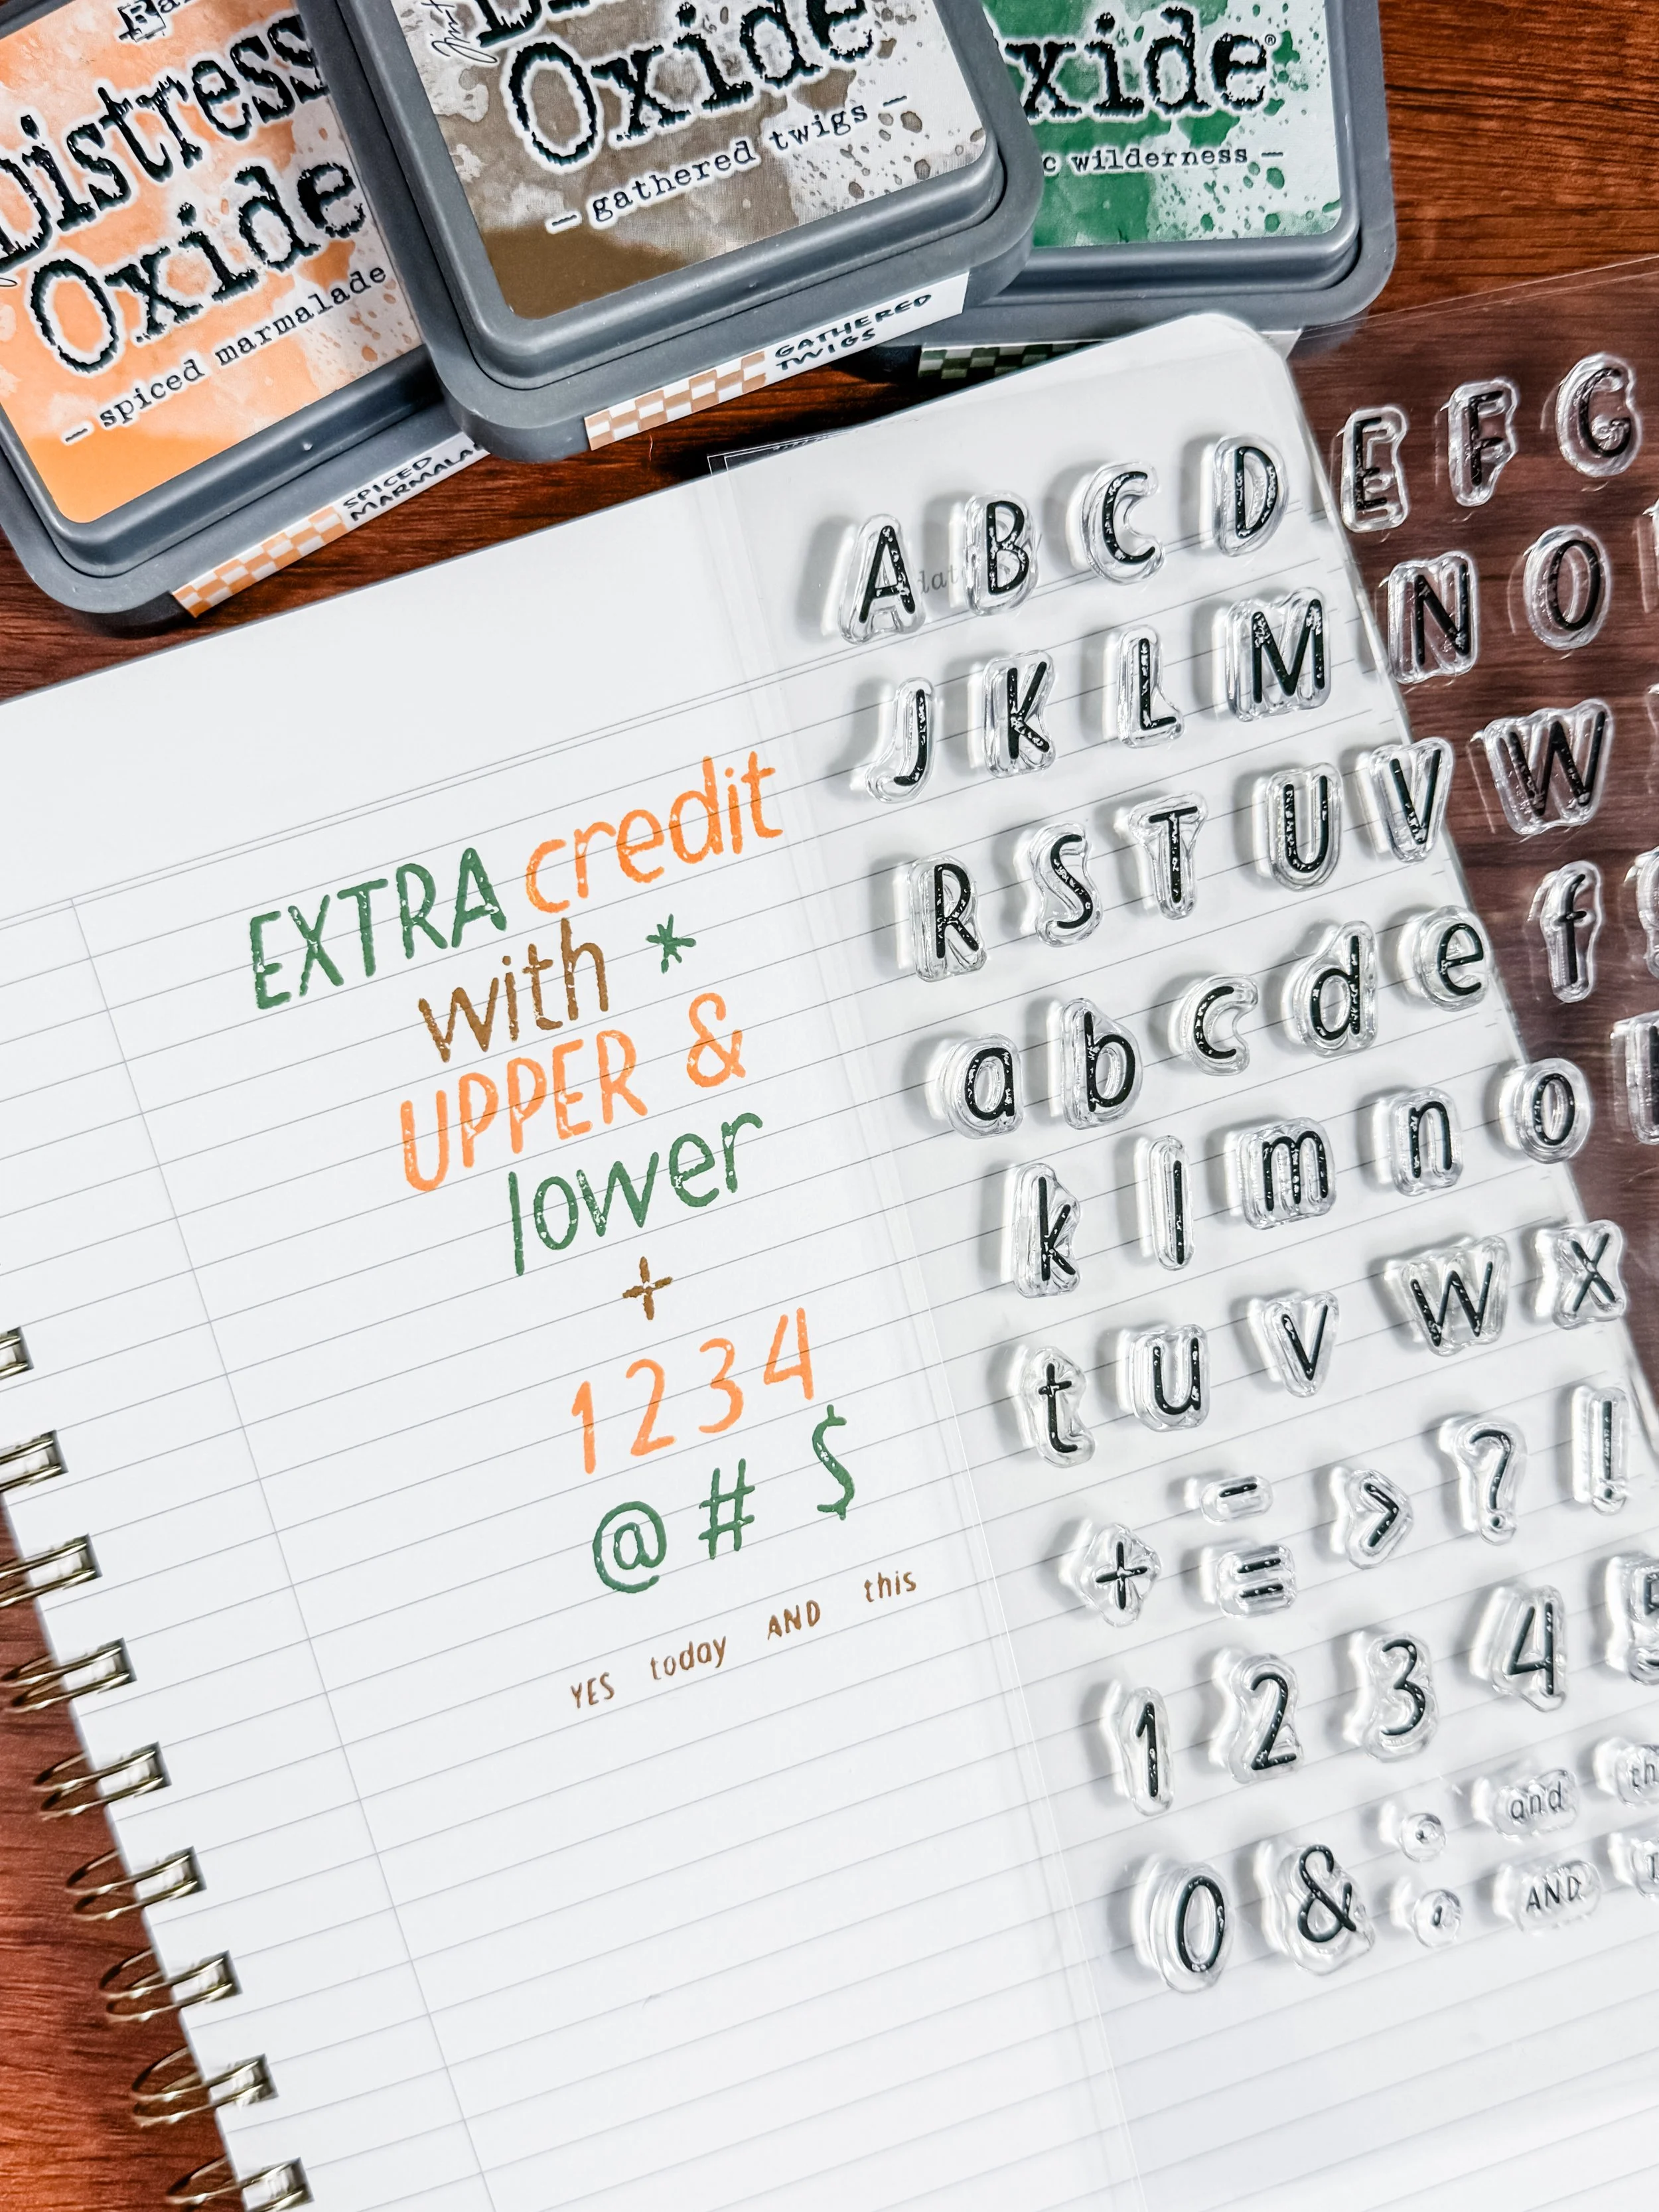 Distress
Oxide
— spiced marmalade
SPICED
Oxide
— gathered twigs —
GATHERED
TWIGS
wilderness —
EXTRA credit
with *
UPPER &
lower
+
1 2 3 4
@ # $
YES today AND this
A B C D E F G
J K L M N O
R S T U V W
a b c d e f
k l m n o
t u v w x
+ - = > ? !
1 2 3 4
0 & and
AND